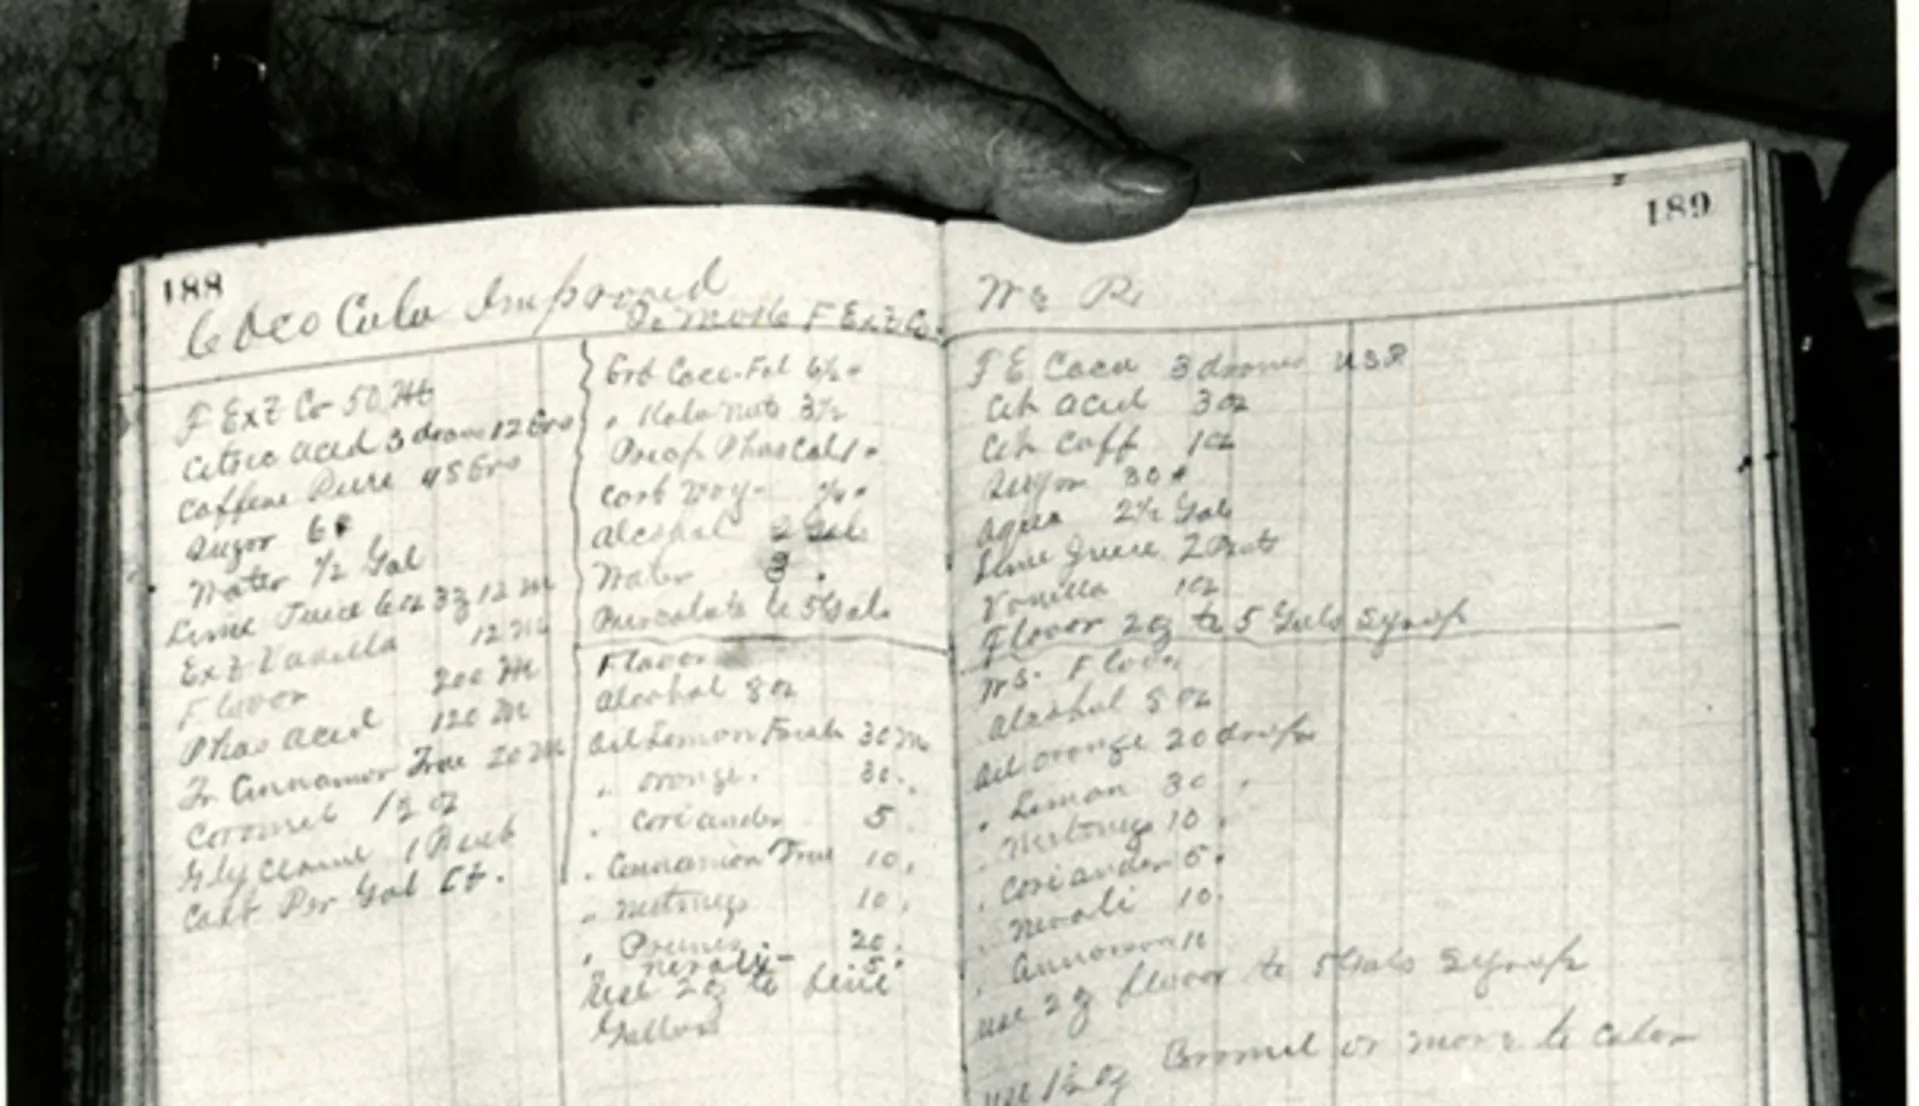 188
Coco Cola Improved
To Make F Ext Co.
F Ext Co 50 M
Citric Acid 3 drams 12 Grs
Caffene Pure 45 Grs
Sugar 6 #
Water 1/2 Gal
Lime Juice 6 oz 3 12 M
Ext Vanilla 12 M
Flavor 200 M
Phos Acid 120 M
Tr Cinnamon True 20 M
Caramel 1 oz
Cost Per Gal
Grd Coca
" Kola Nuts 3 1/2
Alcohol 2 Gals
Water 3 "
Percolate to 5 Gals
Flavor
Alcohol 8 oz
Oil Lemon Fresh 30 M
" Orange. 30 "
" Coriander 5 "
" Cinnamon True 10 "
" Nutmegs 10 "
20 "
Neroli - 5 "
Use 2 to five
Gallons
189
F E Coca 3 drams USP
Cit Acid 3 oz
Cit Caff 1 oz
Sugar 30 #
Aqua 2 1/2 Gals
Lime Juice 2 Pints
Vanilla 1 oz
Flavor 2 to 5 Gals Syrup
Flavor
Alcohol 8 oz
Oil Orange 20 drops
" Lemon 30 "
" Nutmegs 10 "
" Coriander 5 "
" Neroli 10 "
" Cinnamon 10
use 2 flavor to 5 Gals Syrup
use Caramel or more to color